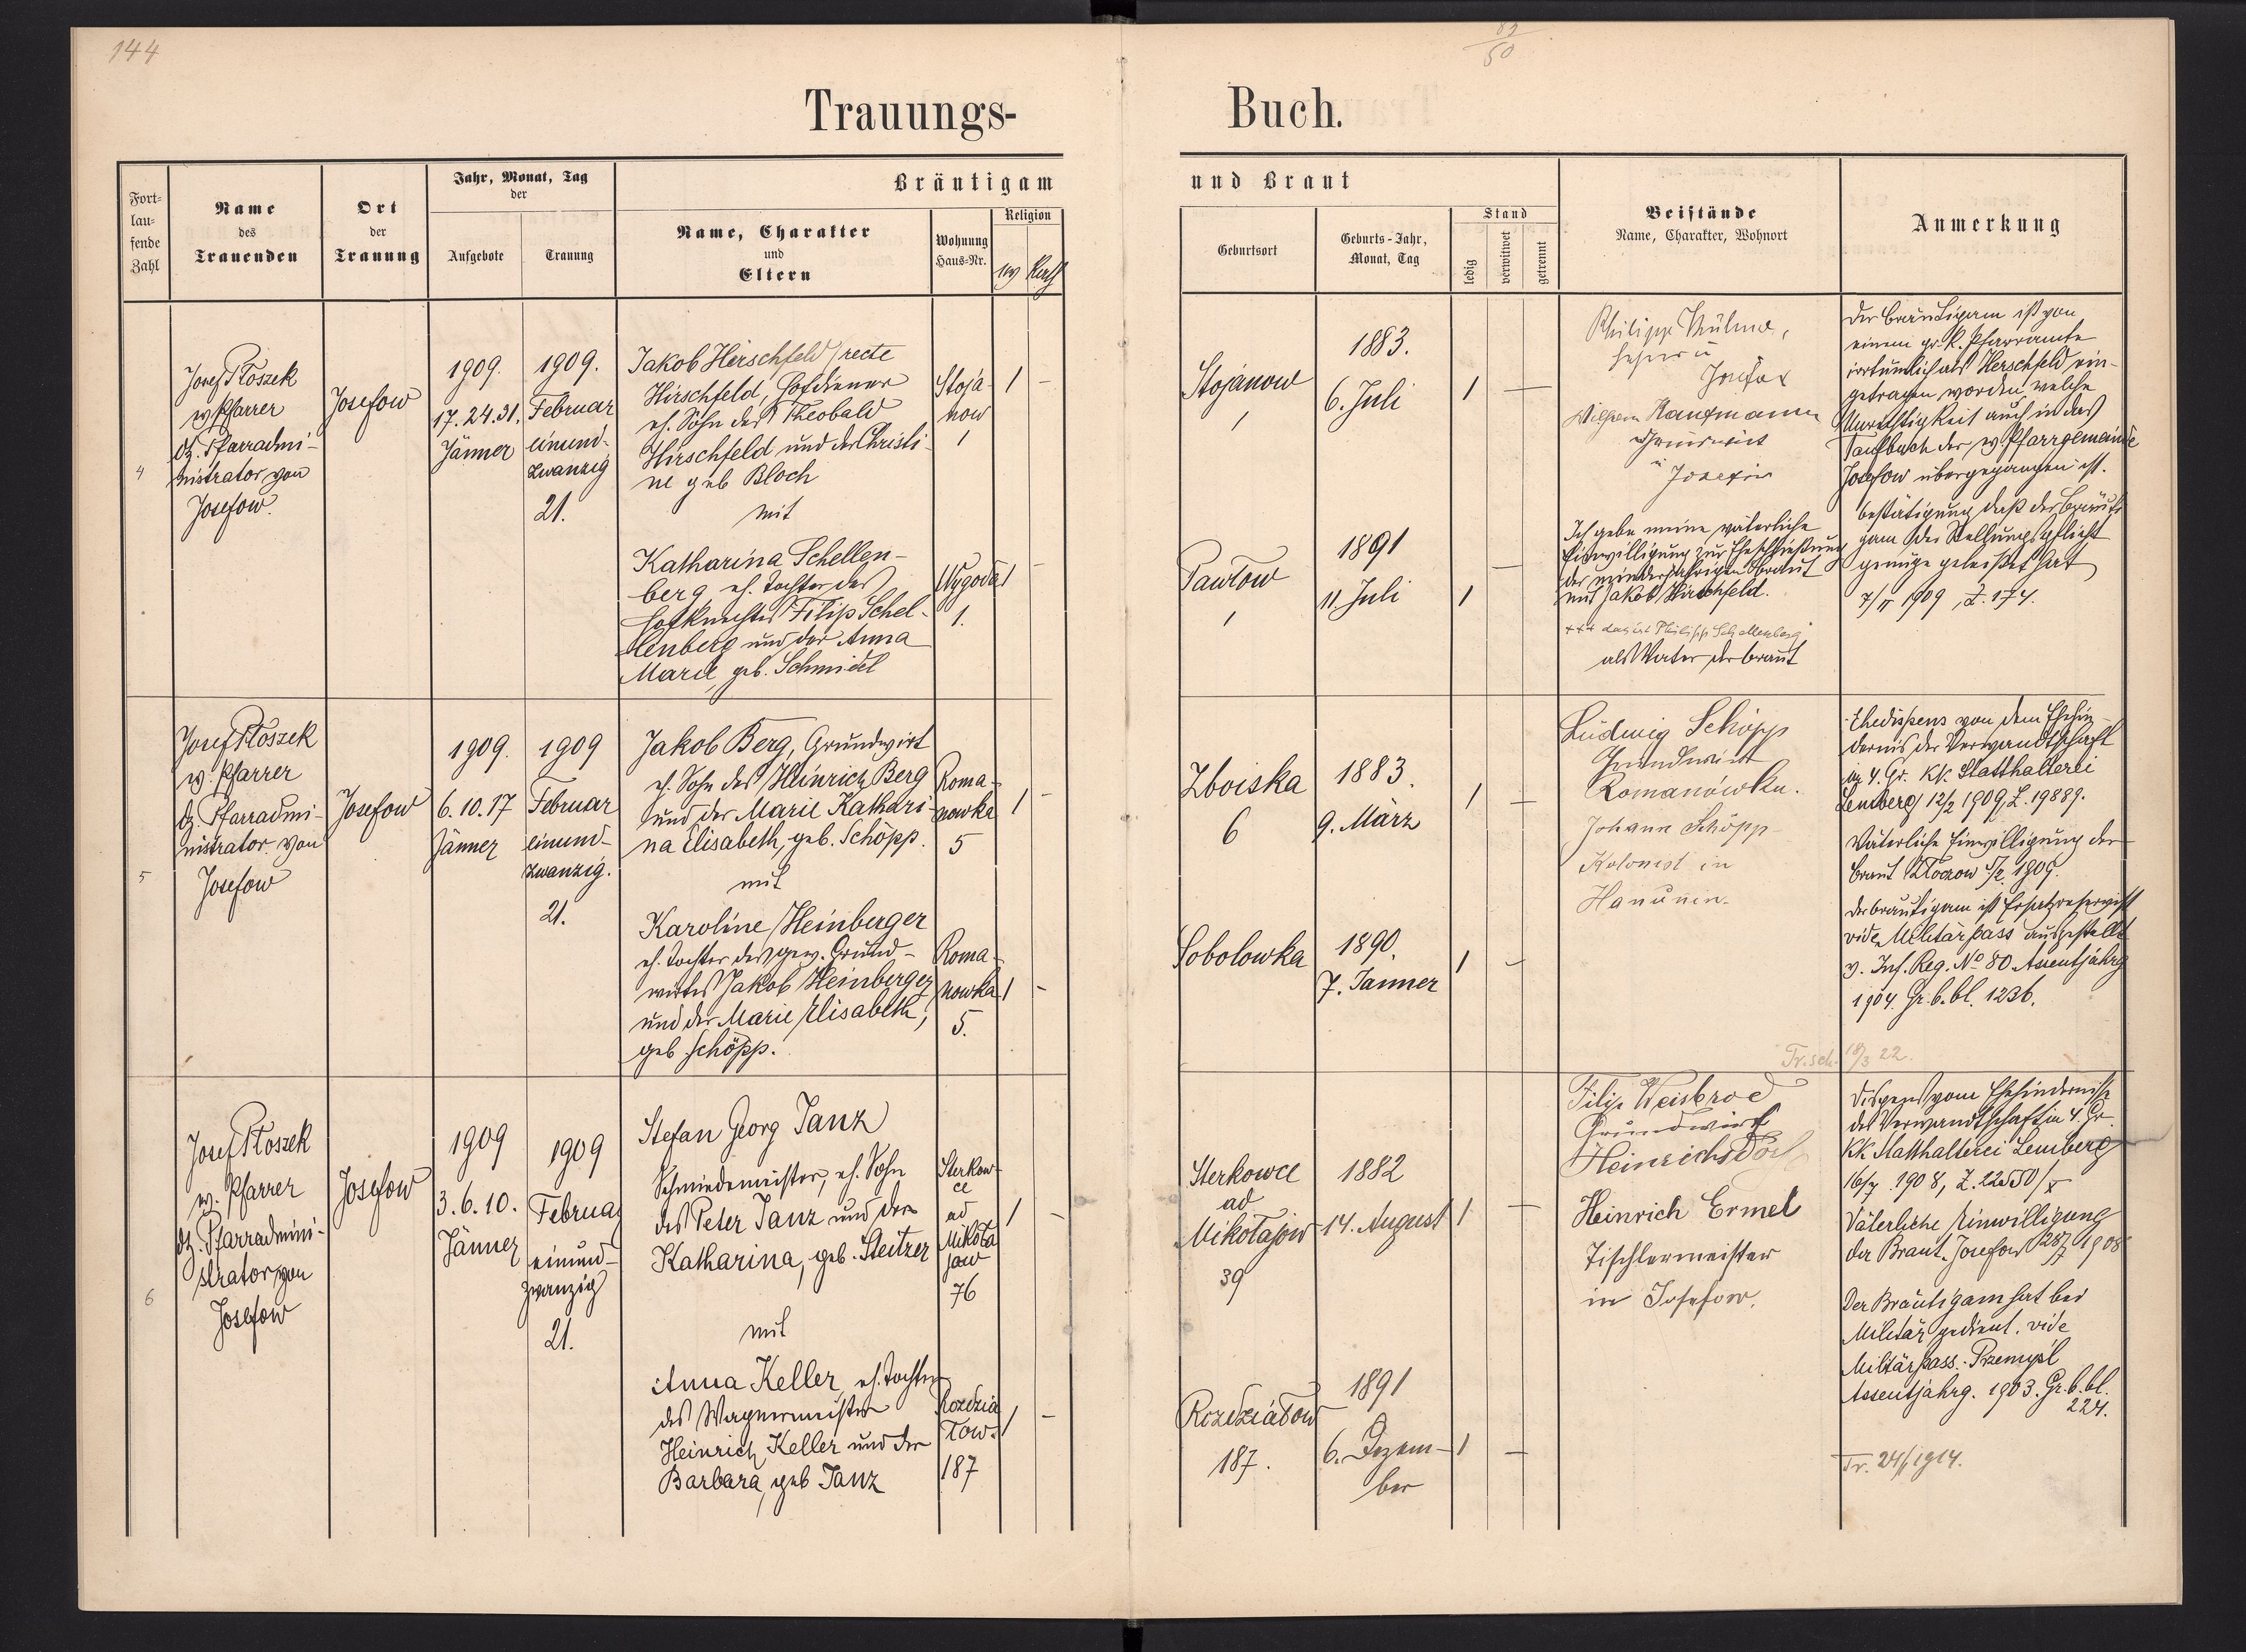 144
50
Trauungs-
Buch.
Fort-
lau-
fende
Zahl
Name
des
Trauenden
Ort
der
Trauung
Jahr, Monat, Tag
der
Aufgebote
Trauung
Bräutigam
Name, Charakter
und
Eltern
Wohnung
Haus-Nr.
Religion
und Braut
Geburtsort
Geburts-Jahr,
Monat, Tag
Stand
ledig
verwitwet
getrennt
Beistände
Name, Charakter, Wohnort
Anmerkung
4
Josef Płoszek
ev Pfarrer
dz. Pfarradmi-
nistrator von
Josefow.
Josefow
1909.
17.24.31.
Jänner
1909.
Februar
einund-
zwanzig
21.
Jakob Herschfeld/recte
Hirschfeld, Hofdiener
eh. Sohn des Theobald
Hirschfeld und der Christi-
ne geb Bloch
mit
Katharina Schellen-
berg, eh. Tochter des
Hofknechtes Filip Schel-
lenberg und der Anna
Marie, geb. Schmidel
Stoja-
now
1
1 -
Wygoda
1.
1 -
Stojanow
1
1883.
6. Juli
1 -
Pawłow
1
1891
11. Juli
1 -
Philipp
Josefow
Wilhelm Kaufmann
Grundwirt
Josefow
Ich gebe meine väterliche
Einwilligung zur Eheschließung
der minderjährigen Braut
mit Jakob Hirschfeld.
+++ das ist Philipp Schellenberg
als Vater der Braut
Der Bräutigam ist von
einem gr. k. Pfarramte
irrtümlich als Herschfeld ein-
getragen worden, welche
Unrichtigkeit auch in das
Taufbuch der ev Pfarrgemeinde
Josefow übergegangen ist.
Bestätigung daß der Bräuti-
gam der Stellungspflicht
genüge geleistet hat
7/II 1909, Z. 174.
5
Josef Płoszek
ev. Pfarrer
dz. Pfarradmi-
nistrator von
Josefow
Josefow
1909.
6.10.17
Jänner
1909
Februar
einund-
zwanzig.
21.
Jakob Berg, Grundwirt
eh. Sohn des Heinrich Berg
und der Marie Kathari-
na Elisabeth, geb. Schöpp.
mit
Karoline Heinberger
eh. Tochter des gew. Grund-
wirtes Jakob Heinberger
und der Marie Elisabeth,
geb Schöpp.
Roma-
nowka
5
1 -
Roma-
nowka
5.
1 -
Zboiska
6
1883.
9. März
1 -
Sobolowka
1890.
7. Jänner
1 -
Ludwig Schöpp
Grundwirt
Romanówka.
Johann Schöpp
Kolonist in
Hanunin.
Ehedispens von dem Ehehin-
dernis der Verwandtschaft
im 4. Gr. KK Statthalterei
Lemberg 12/2 1909, Z. 19889.
Väterliche Einwilligung der
Braut Złoczow 5/2 1909.
Der Bräutigam ist Ersatzreservist
vide Militärpass ausgestellt
v. Inf. Reg. No 80 Assentjahrg
1904 Gr. b. bl. 1236.
Tr. sch. 18/3 22.
6
Josef Płoszek
ev. Pfarrer
dz. Pfarradmini-
strator von
Josefow
Josefow
1909
3.6.10.
Jänner
1909
Februar
einund-
zwanzig
21.
Stefan Georg Tanz
Schmiedemeister, eh. Sohn
des Peter Tanz und der
Katharina, geb. Steitzer
mit
Anna Keller, eh. Tochter
des Wagnermeisters
Heinrich Keller und der
Barbara, geb Tanz
Sterkow-
ce
ad
Mikoła
jow
76
1 -
Rozdzia
łow
187
1 -
Sterkowce
ad
Mikołajow
39
1882
14. August
1 -
Rozdziałow
187.
1891
6. Dezem-
ber
1 -
Filip Weisbrod
Grundwirt
Heinrichsdorf
Heinrich Ermel
Tischlermeister
in Josefow.
Dispens vom Ehehindernisse
der Verwandtschaft im 4 Gr.
KK Statthalterei Lemberg
16/7 1908, Z. 22550/X
Väterliche Einwilligung
der Braut. Josefow 28/7 1908
Der Bräutigam hat bei
Militär gedient, vide
Militärpass. Przemyśl
Assentjahrg. 1903. Gr. b. bl.
224.
Tr. 24/1 1914.